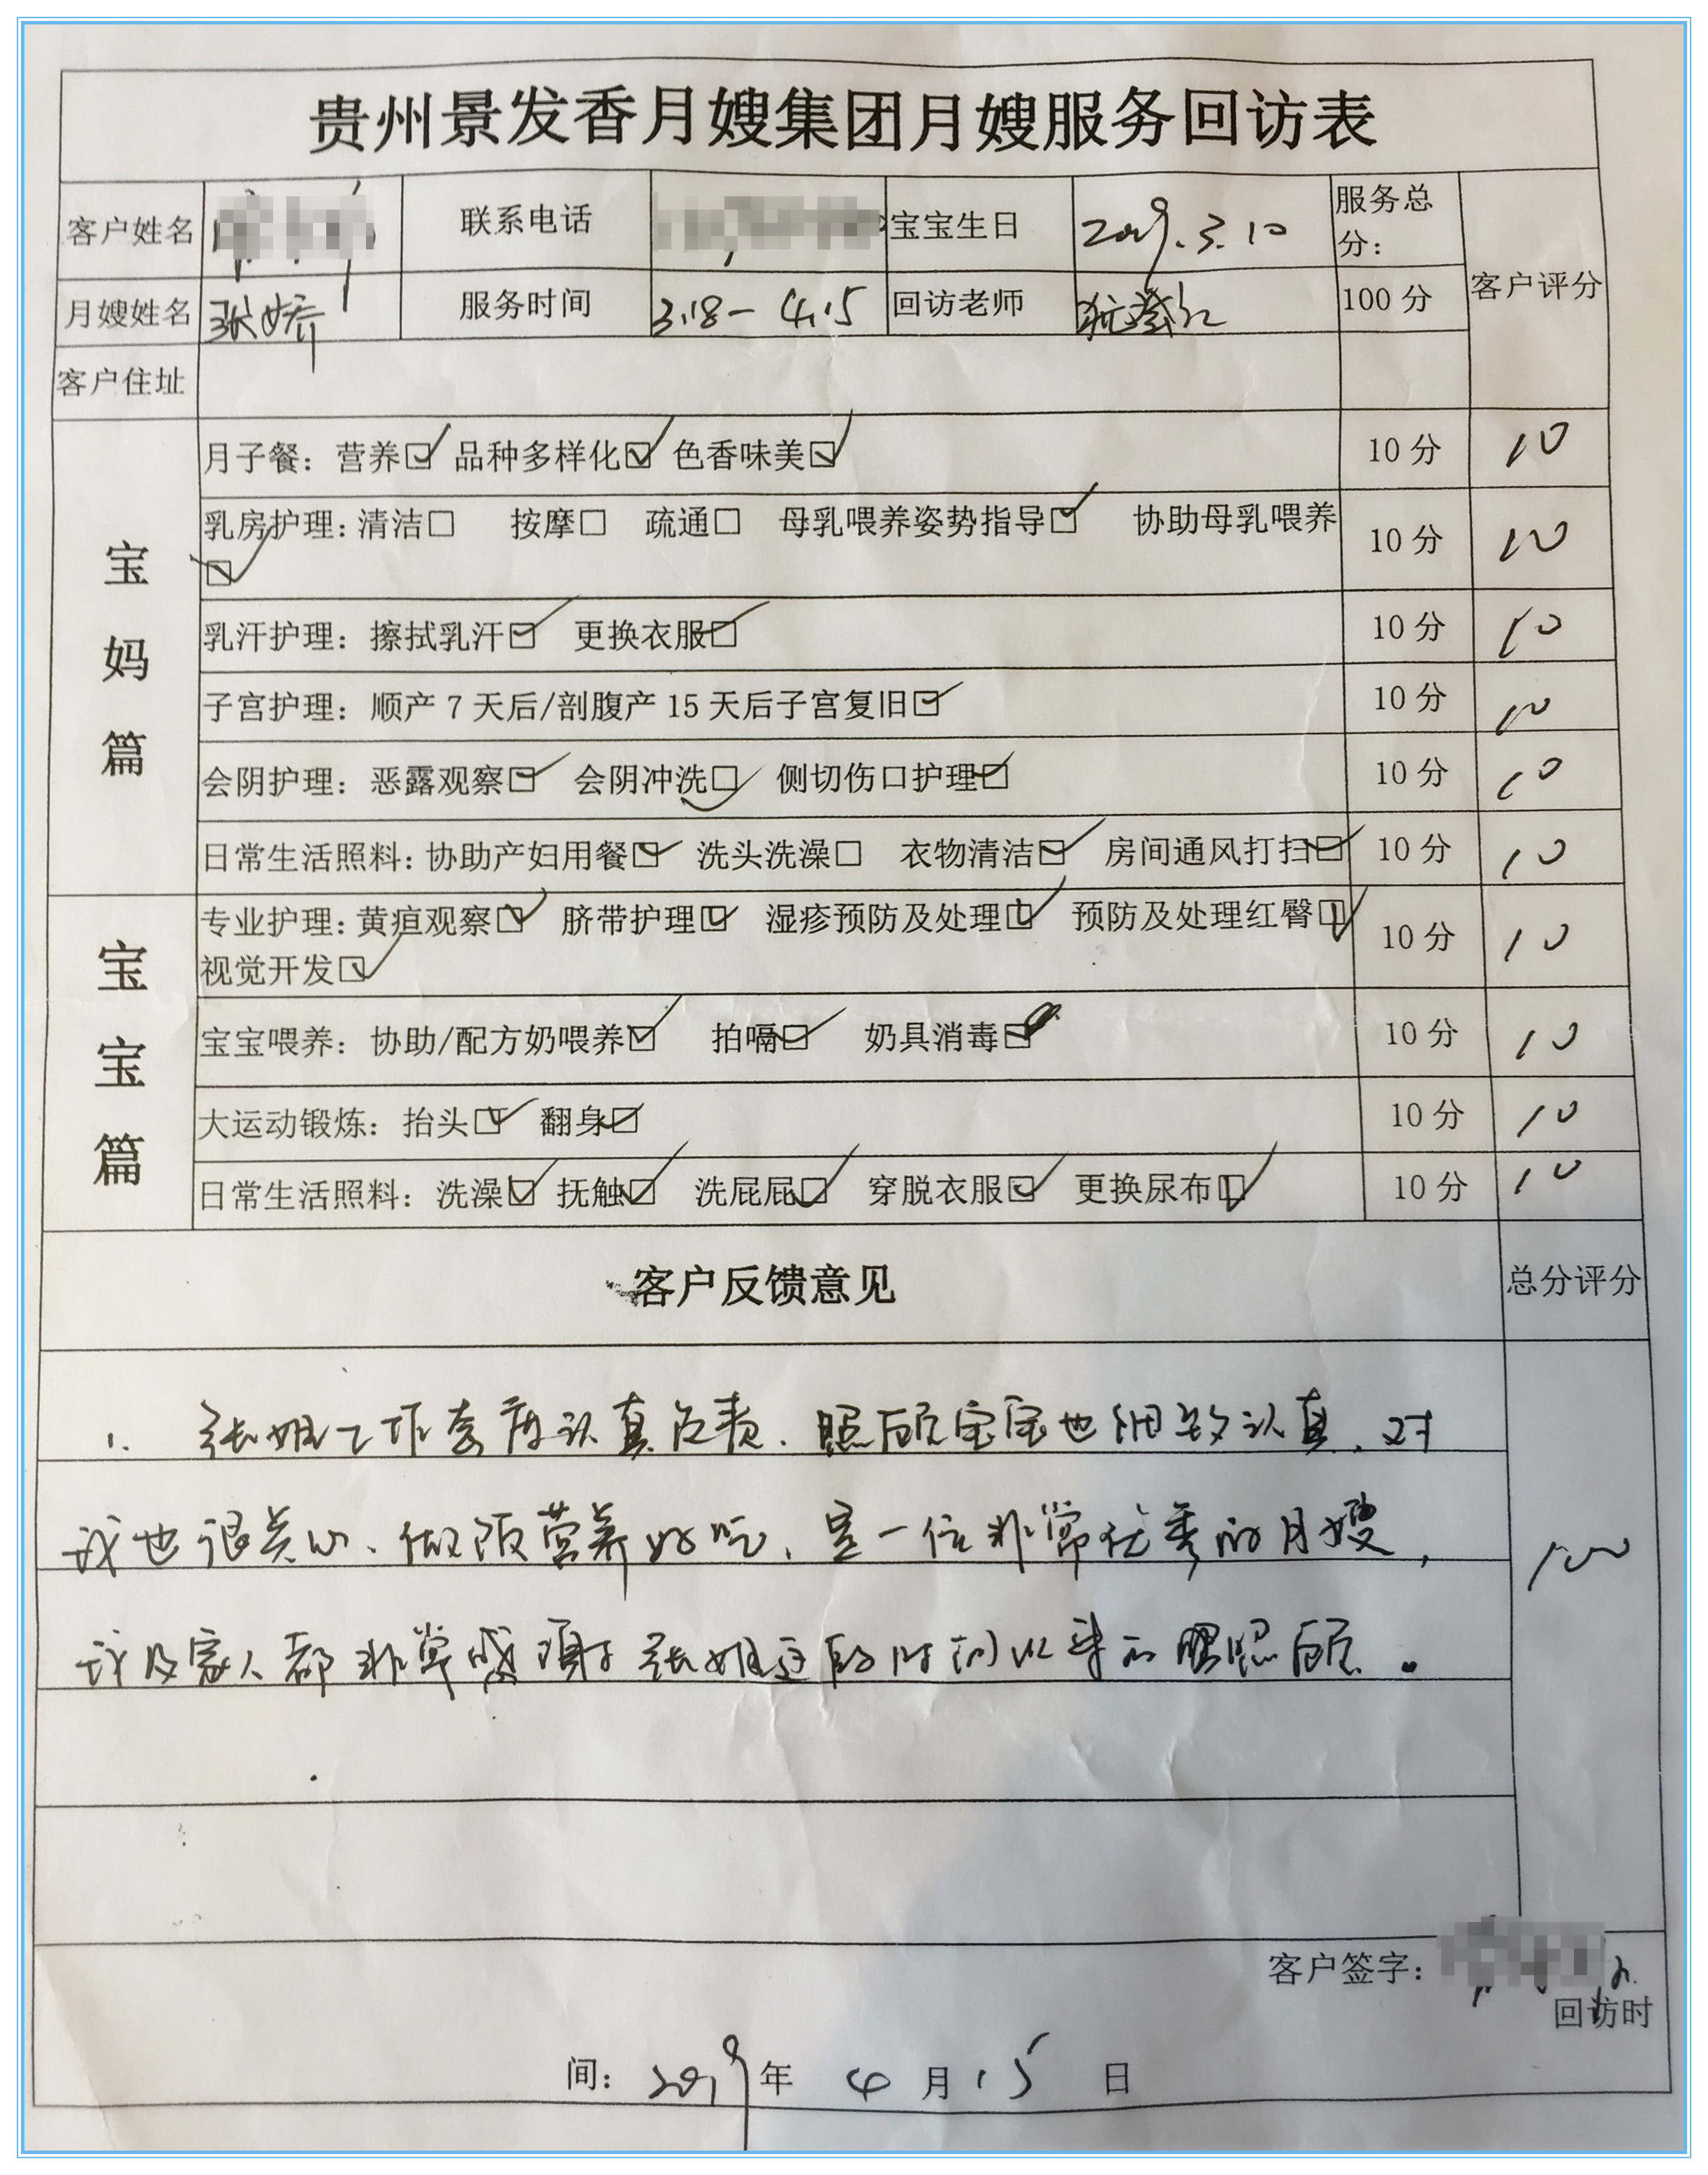 贵州景发香月嫂集团月嫂服务回访表
客户姓名 联系电话 宝宝生日 2019.3.10 服务总分： 客户评分
月嫂姓名 张娇 服务时间 3.18-4.15 回访老师 100分
客户住址
宝妈篇
月子餐：营养☑ 品种多样化☑ 色香味美☑ 10分 10
乳房护理：清洁□ 按摩□ 疏通□ 母乳喂养姿势指导☑ 协助母乳喂养
☑ 10分 10
乳汗护理：擦拭乳汗☑ 更换衣服☑ 10分 10
子宫护理：顺产7天后/剖腹产15天后子宫复旧☑ 10分 10
会阴护理：恶露观察☑ 会阴冲洗☑ 侧切伤口护理☑ 10分 10
日常生活照料：协助产妇用餐☑ 洗头洗澡□ 衣物清洁☑ 房间通风打扫☑ 10分 10
宝宝篇
专业护理：黄疸观察☑ 脐带护理☑ 湿疹预防及处理☑ 预防及处理红臀☑
视觉开发☑ 10分 10
宝宝喂养：协助/配方奶喂养☑ 拍嗝☑ 奶具消毒☑ 10分 10
大运动锻炼：抬头☑ 翻身☑ 10分 10
日常生活照料：洗澡☑ 抚触☑ 洗屁屁☑ 穿脱衣服☑ 更换尿布☑ 10分 10
客户反馈意见 总分评分
1. 张姐工作态度认真负责、照顾宝宝也细致认真、对
我也很关心、做饭营养好吃、是一位非常优秀的月嫂，
我及家人都非常感谢张姐这段时间以来的照顾。
100
客户签字：
回访时
间：2019年4月15日